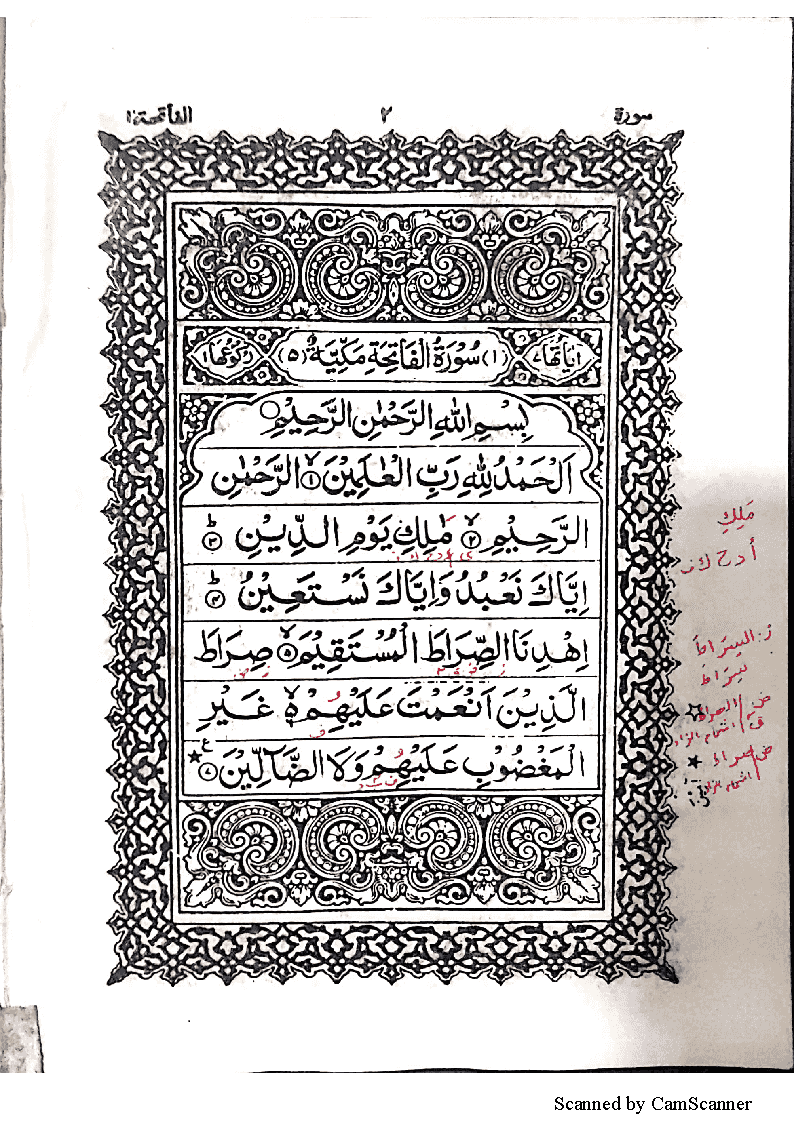 سورة ٢ الفاتحة ١
اٰیاتها ٧ (١) سُوْرَةُ الْفَاتِحَةِ مَكِّيَّةٌ (٥) رُكُوْعُهَا ١
بِسْمِ اللّٰهِ الرَّحْمٰنِ الرَّحِيْمِ
اَلْحَمْدُ لِلّٰهِ رَبِّ الْعٰلَمِيْنَ ۙ﴿١﴾ الرَّحْمٰنِ
الرَّحِيْمِ ۙ﴿٢﴾ مٰلِكِ يَوْمِ الدِّيْنِ ؕ﴿٣﴾
اِيَّاكَ نَعْبُدُ وَاِيَّاكَ نَسْتَعِيْنُ ؕ﴿٤﴾
اِهْدِنَا الصِّرَاطَ الْمُسْتَقِيْمَ ۙ﴿٥﴾ صِرَاطَ
الَّذِيْنَ اَنْعَمْتَ عَلَيْهِمْ ۙ۬ غَيْرِ
الْمَغْضُوْبِ عَلَيْهِمْ وَلَا الضَّآلِّيْنَ ﴿٧﴾
مَلِكِ
السِّرَاطَ
سِرَاطَ
Scanned by CamScanner